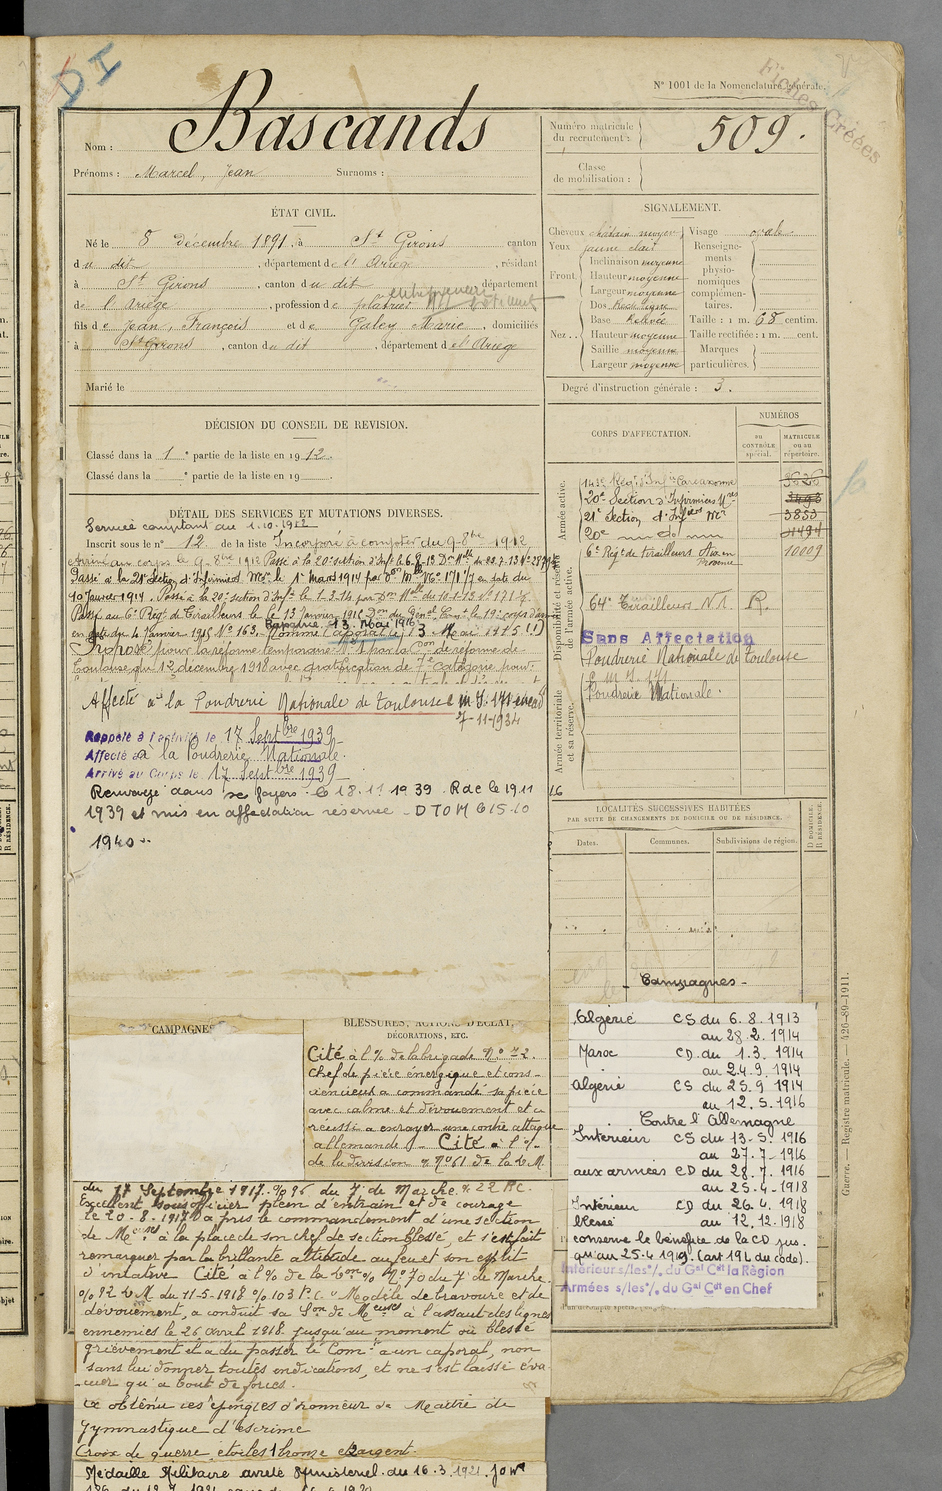 DI
N° 1001 de la Nomenclature générale.
Fiches Créées
Nom : Bascands
Prénoms : Marcel, Jean Surnoms :
Numéro matricule du recrutement : 509.
Classe de mobilisation :
ÉTAT CIVIL.
Né le 8 Décembre 1891, à St Girons canton
du dit, département de l'Ariège, résidant
à St Girons, canton du dit département
de l'Ariège, profession de plâtrier entrepreneur
fils de Jean, François et de Galey Marie, domiciliés
à St Girons, canton du dit, département de l'Ariège
Marié le
SIGNALEMENT.
Cheveux châtain moyen Visage ovale
Yeux jaune clair Renseignements physionomiques complémentaires.
Front Inclinaison moyenne
Hauteur moyenne
Largeur moyenne
Nez Dos Rectiligne
Base Relevée Taille : 1 m. 68 centim.
Hauteur moyenne Taille rectifiée : 1 m. cent.
Saillie moyenne Marques
Largeur moyenne particulières.
Degré d'instruction générale : 3.
DÉCISION DU CONSEIL DE REVISION.
Classé dans la 1e partie de la liste en 1912.
Classé dans la e partie de la liste en 19
CORPS D'AFFECTATION.
NUMÉROS
au CONTRÔLE spécial.
MATRICULE ou au répertoire.
Armée active.
143e Régt d'Infie Carcassonne
20e Section d'Infirmiers Mres
21e Section d'Infiers Mre 3853
20e
6e Régt de tirailleurs Aix en Provence 10009
Disponibilité et réserve de l'armée active.
64e Tirailleurs N.A. R.
Sans Affectation
Poudrerie Nationale de Toulouse
Poudrerie Nationale.
Armée territoriale et sa réserve.
DÉTAIL DES SERVICES ET MUTATIONS DIVERSES.
Service comptant du 1.10.1912
Inscrit sous le n° 12 de la liste Incorporé à compter du 9 8bre 1912
Arrivé au corps le 9 8bre 1912 Passé à la 20e section d'Infrs le 6.8.13
Passé à la 21e Section d'Infirmiers Mres le 1er Mars 1914 par Don Mlle No 171/7 en date du
10 janvier 1914. Passé à la 20e section d'Infrs le 1.3.14 par Don Mlle du 10.1.13 No 171/7.
Passé au 6e Régt de Tirailleurs le 13 Janvier 1915 Don du Génal Comt le 19e corps d'armée
en date du 4 Janvier 1915 No 163. Rapatrié 13 Mai 1916 Nommé Caporal le
Proposé pour la réforme temporaire No 1 par la Con de réforme de
Toulouse du 12 décembre 1918 avec gratification de 7e catégorie pour:
Affecté à la Poudrerie Nationale de Toulouse
7-11-1934
Rappelé à l'activité le 17 Septbre 1939
Affecté à la Poudrerie Nationale.
Arrivé au Corps le 17 Septbre 1939
Renvoyé dans ses foyers le 18.11.1939. Rdc le 19.11
1939 et mis en affectation réservée - D T O M 615-10
1940.
LOCALITÉS SUCCESSIVES HABITÉES
PAR SUITE DE CHANGEMENTS DE DOMICILE OU DE RÉSIDENCE.
Dates. Communes. Subdivisions de région.
D DOMICILE. R RÉSIDENCE.
Campagnes -
Algérie CS du 6.8.1913
au 28.2.1914
Maroc CD. du 1.3.1914
au 24.9.1914
Algérie CS du 25.9.1914
au 12.5.1916
Contre l'Allemagne
Intérieur CS du 13-5-1916
au 27.7-1916
aux armées CD du 28.7.1916
au 25.4-1918
Intérieur CD du 26.4.1918
blessé au 12.12.1918
conserve le bénéfice de la CD jus.
qu'au 25.4.1919. (art 194 du code).
Intérieur s/les °/. du Gal Cdt la Région
Armées s/les °/. du Gal Cdt en Chef
CAMPAGNES
BLESSURES, ACTIONS D'ÉCLAT,
DÉCORATIONS, ETC.
Cité à l'% de la brigade No 72.
Chef de pièce énergique et cons-
ciencieux a commandé sa pièce
avec calme et dévouement et a
réussi a enrayer une contre attaque
allemande - Cité à l'%
de la division No 61 de la D.M.
du 17 Septembre 1917. % 96 du 7e de Marche.
Excellent sous officier plein d'entrain et de courage
le 20-8-1917 a pris le commandement d'une section
de Mses à la place de son chef de section blessé, et s'est fait
remarquer par la brillante attitude au feu et son esprit
d'initiative Cité à l'% de la Don % No 70 du 7e de Marche.
% 92 D.M. du 11-5-1918 % 103 P.C. Modèle de bravoure et de
dévouement, a conduit sa Son de Meuses à l'assaut des lignes
ennemies le 26 avril 1918. jusqu'au moment où blessé
grièvement il a du passer le Comt a un caporal, non
sans lui donner toutes indications, et ne s'est laissé éva-
cuer qu'a bout de forces.
a obtenu les épingles d'honneur de Maître de
Gymnastique d'escrime
Croix de guerre étoiles 1 bronze et 2 argent.
Médaille Militaire arrêté Ministériel du 16.3.1921. JO No
Guerre. — Registre matricule. — 426-89-1911.